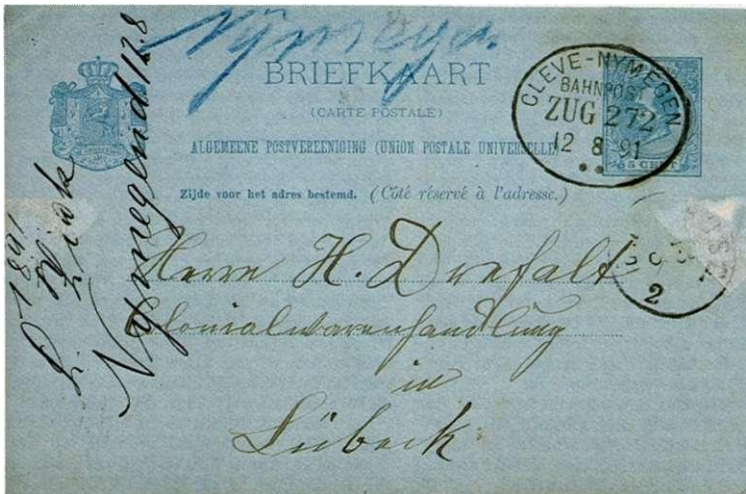 Nijmegen
BRIEFKAART
(CARTE POSTALE)
ALGEMEENE POSTVEREENIGING (UNION POSTALE UNIVERSELLE)
Zijde voor het adres bestemd. (Côté réservé à l'adresse.)
CLEVE-NYMEGEN
BAHNPOST
ZUG 272
12 8 91
5 CENT
2
Herrn H. Drefalt
Colonialwarenhandlung
in
Lübeck
Nymegen d 12.8
1891